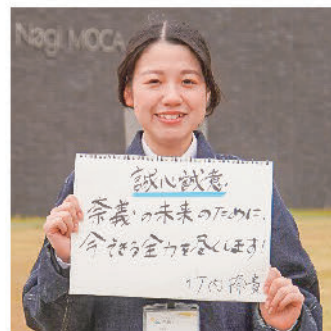 Nagi MOCA
誠心誠意、
奈義の未来のために、
今できる全力を尽くします!
竹内